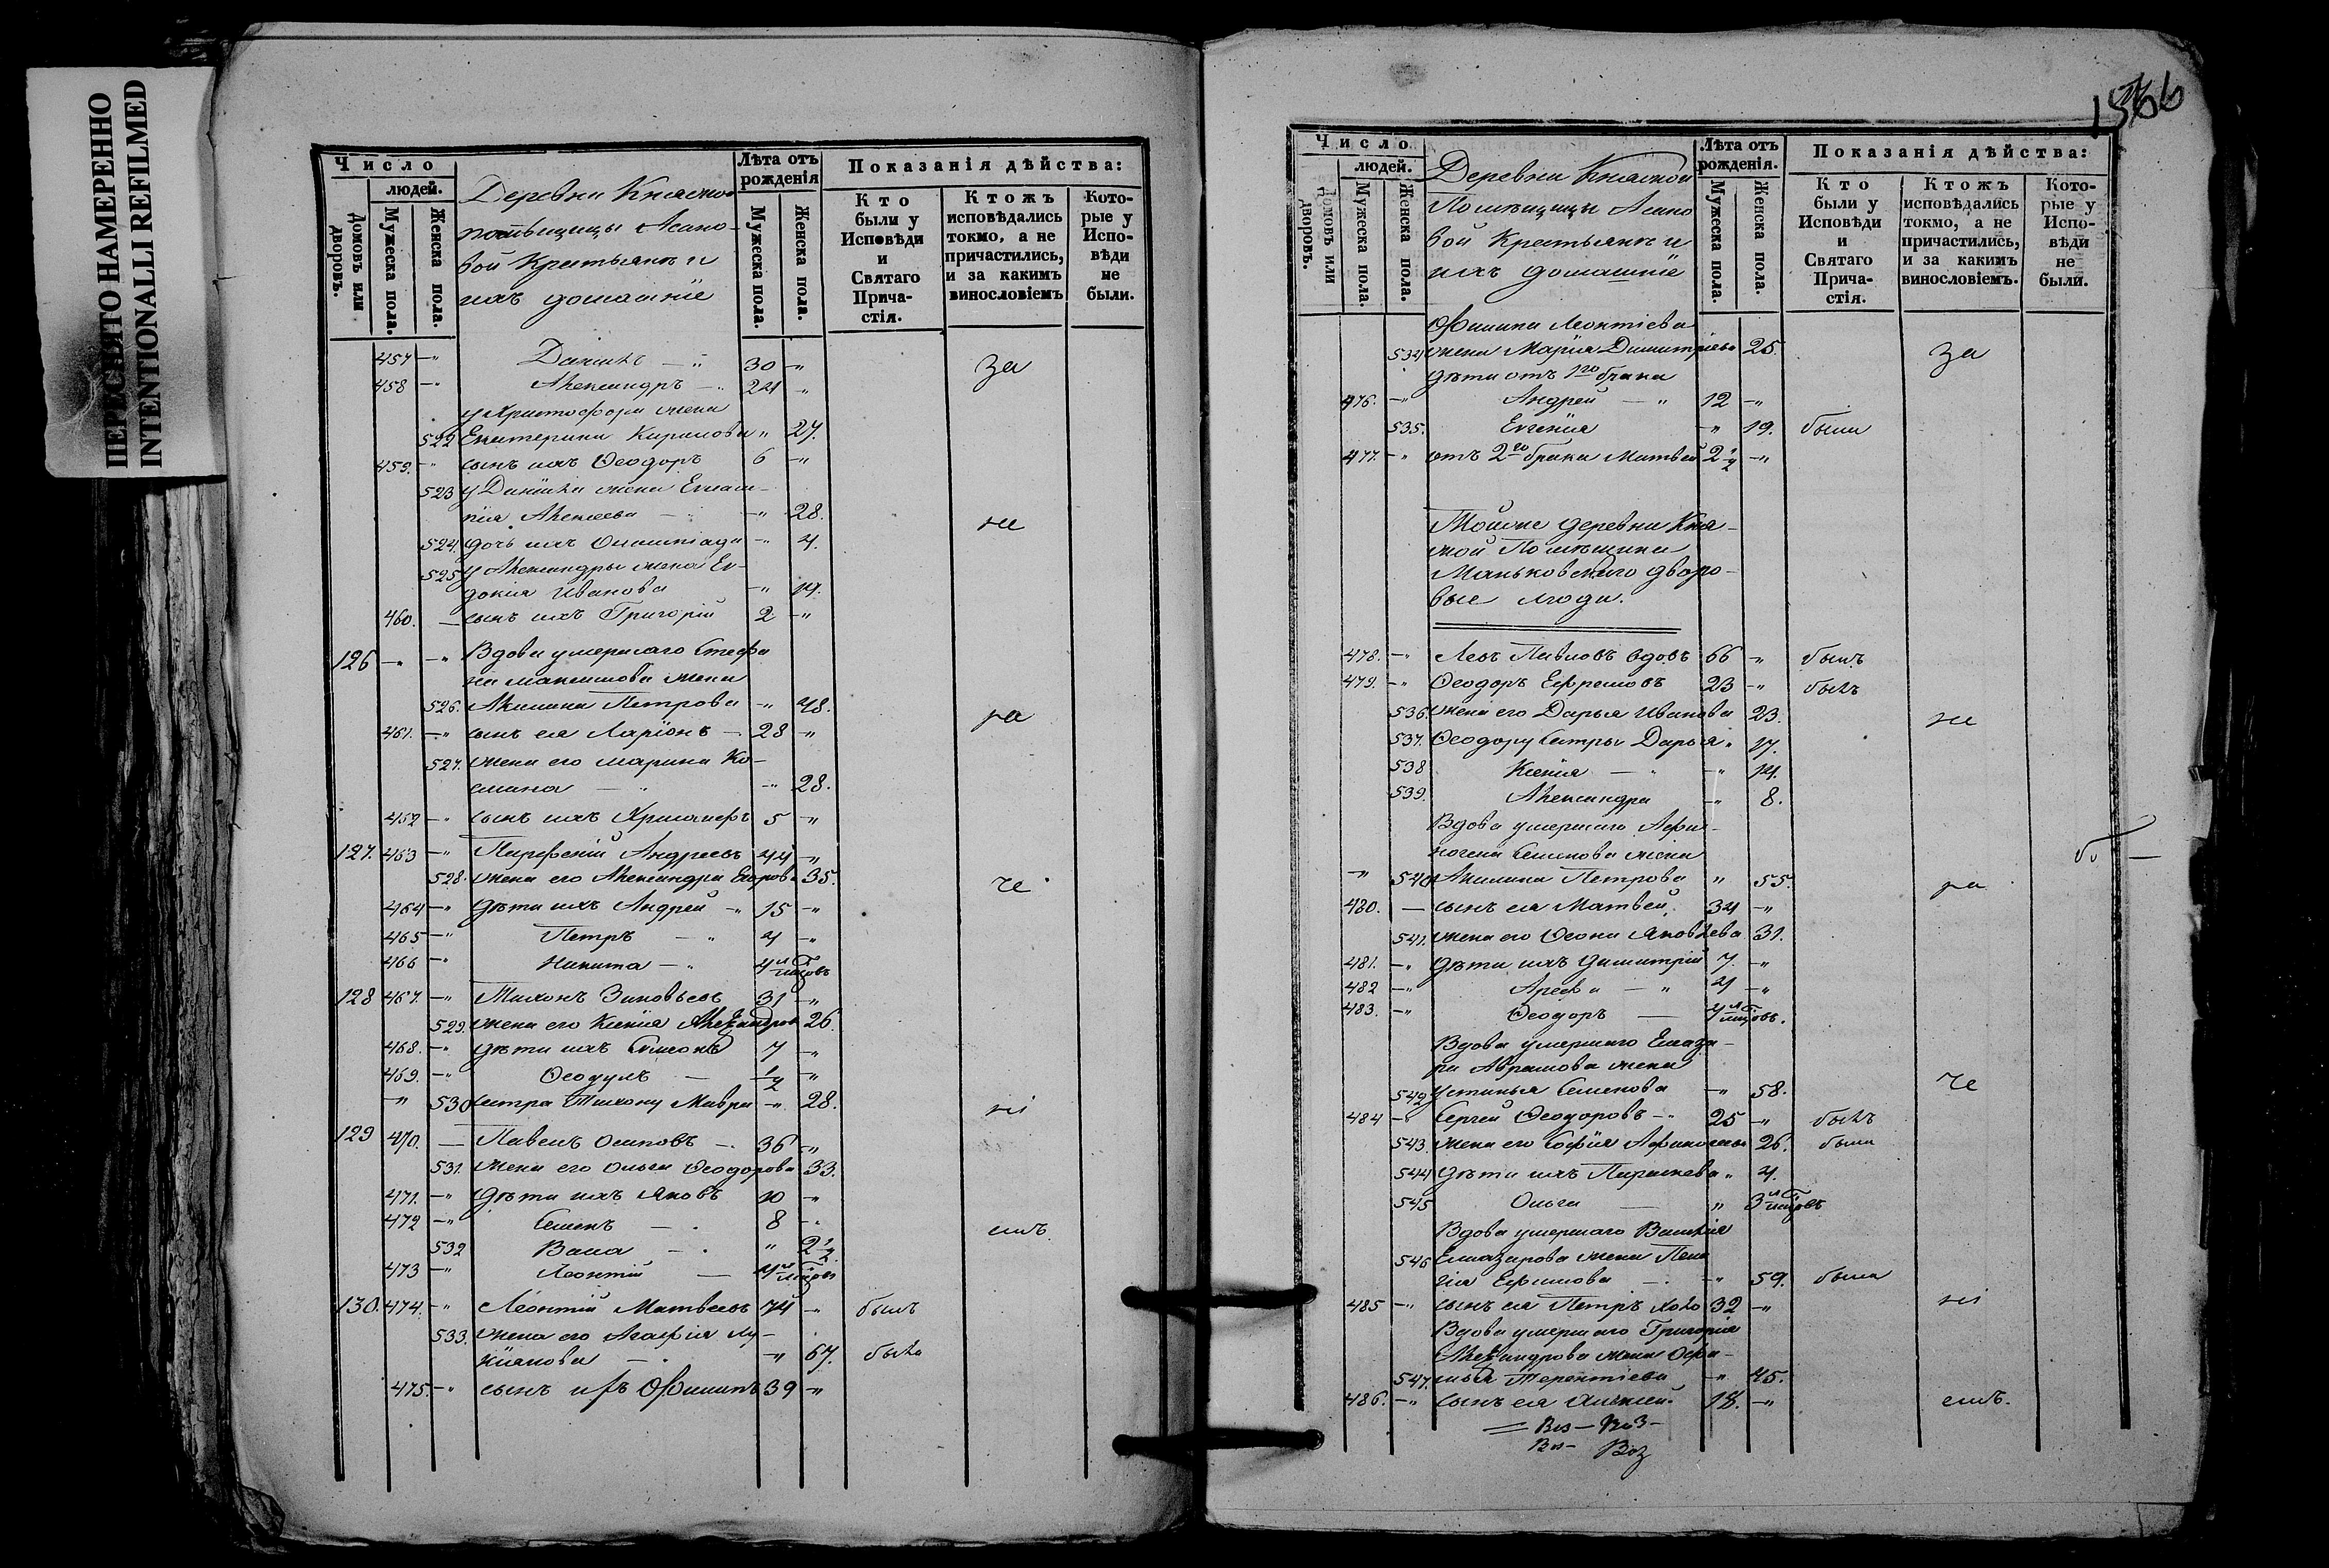 ПЕРЕСНЯТО НАМЕРЕННО
INTENTIONALLI REFILMED
Число
людей.
Домовъ или дворовъ.
Мужеска пола.
Женска пола.
Деревни Княжной
помѣщицы Асано-
вой Крестьянъ и
ихъ домашніе
Лѣта отъ рожденія
Мужеска пола.
Женска пола.
Показанія дѣйства:
Кто были у Исповѣди и Святаго Причастія.
Ктожъ исповѣдались токмо, а не причастились, и за какимъ винословіемъ
Которые у Исповѣди не были.
457 -" Данiилъ - " 30 -" за
458 -" Александръ - " 24 "
у Христофора жена
522 Екатерина Кирилова " 27.
459. " сынъ ихъ Ѳеодоръ 6 -"
523 у Данiила жена Евгам-
пiя Алексеева - " 28. не
524. дочь ихъ Олимпiада -" 4.
525 у Александры жена Ев-
докiя Иванова -"
460. - сынъ ихъ Григорiй 2 -"
126 -" -" Вдова умершаго Стефа
на Максимова жена
526. Акилина Петрова -" 48.
461. -" сынъ ея Ларiонъ - 28 -" ра
527. жена его Марина Ко-
смина - " -" 28.
452 -" сынъ ихъ Хрисанфъ 5 -"
127. 463 -" Парфенiй Андреевъ 44 -"
528. жена его Александра Егорова 35. че
464 -" дѣти ихъ Андрей -" 15 -"
465 -" Петръ - " 4 -"
466 -" Никита - " 4 мѣсяцовъ
128 467. -" Тихонъ Зиновьевъ 31 -"
529 жена его Ксенiя Александрова 26.
468. -" дѣти ихъ Симеонъ 7 -"
469. -" Ѳеодулъ - 1/2 -"
-" 530 сестра Тихону Мавра -" 28. нi
129 470. - Павелъ Осиповъ - 36 -"
531. жена его Ольга Ѳеодорова 33.
471. -" дѣти ихъ Яковъ 10 -"
472 -" Семенъ - 8 -" емъ
532 Васса - " 2 1/2
473 -" Леонтiй - 4 мѣсяцъ
130. 474. -" Леонтiй Матвеевъ 74 -" былъ
533. жена его Агафiя Лу-
кiянова - -" 67. была
475. -" сынъ ихъ Филипъ 39 -"
Число
людей.
Домовъ или дворовъ.
Мужеска пола.
Женска пола.
Деревни Княжной
Помѣщицы Асано
вой Крестьянъ и
ихъ домашнiе
Лѣта отъ рожденія.
Мужеска пола.
Женска пола.
Показанія дѣйства:
Кто были у Исповѣди и Святаго Причастія.
Ктожъ исповѣдались токмо, а не причастились, и за какимъ винословіемъ.
Которые у Исповѣди не были.
Филипа Леонтiева
534 жена Марiя Димитрiева 25. за
дѣти отъ 1го брака
476. -" Андрей - " 12 -"
535. Евгенiя -" 19. была
477. -" отъ 2го брака Матвей 2 1/2 -"
Тойже деревни Кня-
жной Помѣщика
Маньковскаго дворо-
вые люди.
478. -" Левъ Павловъ вдовъ 66 -" былъ
479. -" Ѳеодоръ Ефремовъ 23 -" былъ
536. жена его Дарья Иванова 23. не
537. Ѳеодору сестры Дарья " 17.
538 Ксенiя - " -" 14.
539. Александра -" 8.
Вдова умершаго Афи-
ногена Семенова жена
-" 540 Акилина Петрова " 55. ра
480. - сынъ ея Матвей, 34 -"
541. жена его Ѳеона Яковлева 31.
481. -" дѣти ихъ Димитрiй 7. -"
482 -" Арефа - " 4 -"
483. -" Ѳеодоръ - 4 мѣсяцовъ.
Вдова умершаго Елеаза-
ра Аврамова жена
542 Устинья Семенова -" 58. че
484 -" Сергей Ѳеодоровъ -" 25 -" былъ
543. жена его Софiя Афиногенова 26. была
544 дѣти ихъ Параскева " 4.
545 Ольга - " 3 мѣсяцовъ
Вдова умершаго Василiя
546 Елиазарова жена Пела
гiя Ефимова - " -" 59. была
485 -" сынъ ея Петръ холо 32 -" нi
Вдова умершаго Григорiя
Александрова жена Ѳефи-
547. Терентiева -" 45.
486. -" сынъ ея Алексей 18. -" емъ.